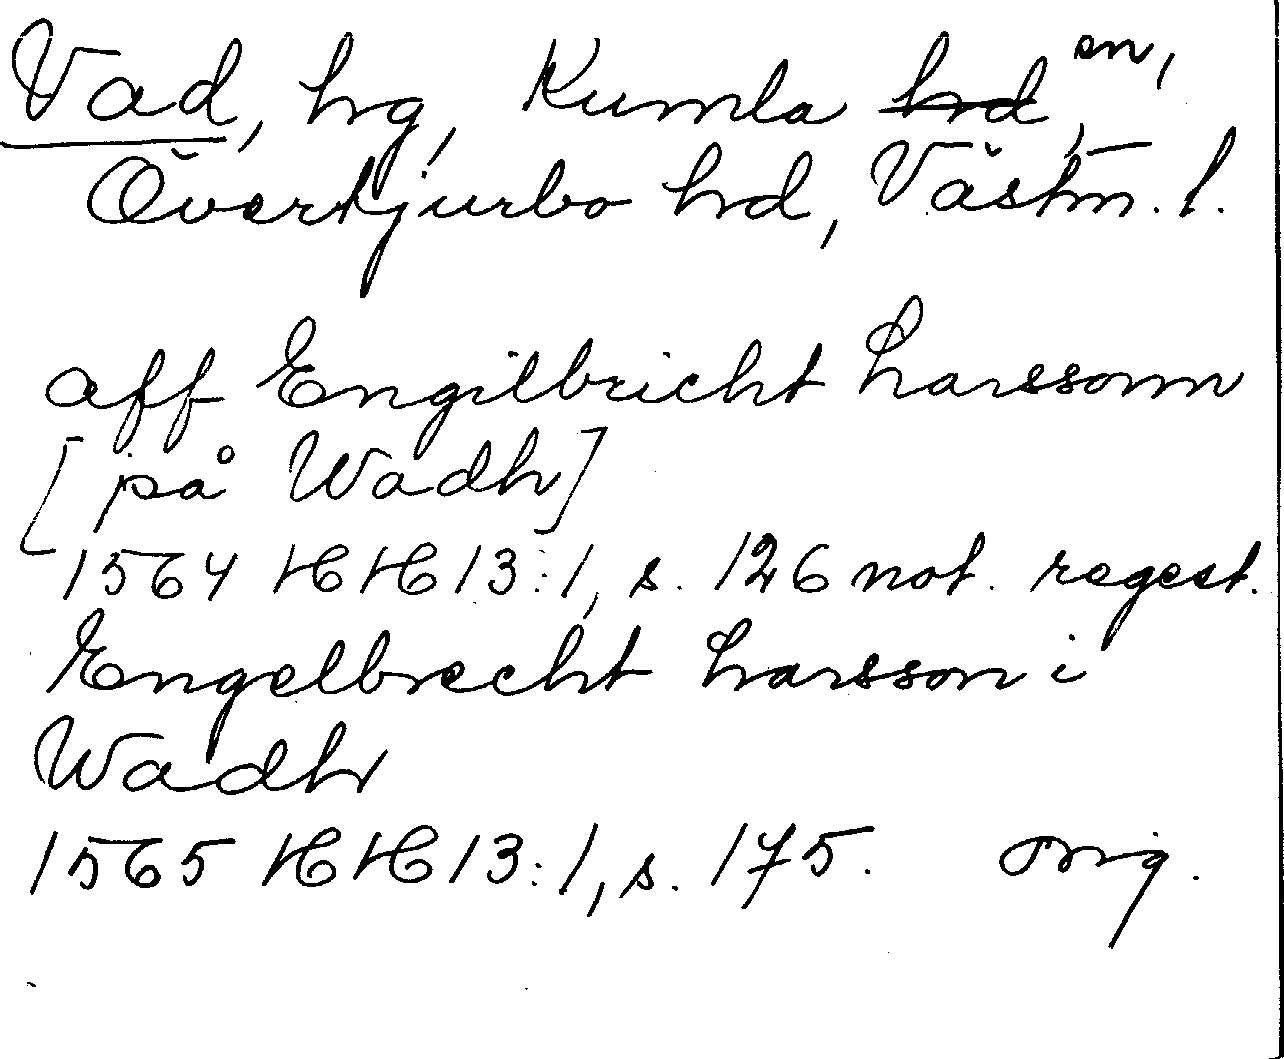 Vad, hg, Kumla ~~hd~~ sn,
Övertjurbo hd, Västm. l.
aff Engilbricht Larssonn
[på Wadh]
1564 HH 13:1, s. 126 not. regest.
Engelbrecht Larsson i
Wadh
1565 HH 13:1, s. 175. orig.